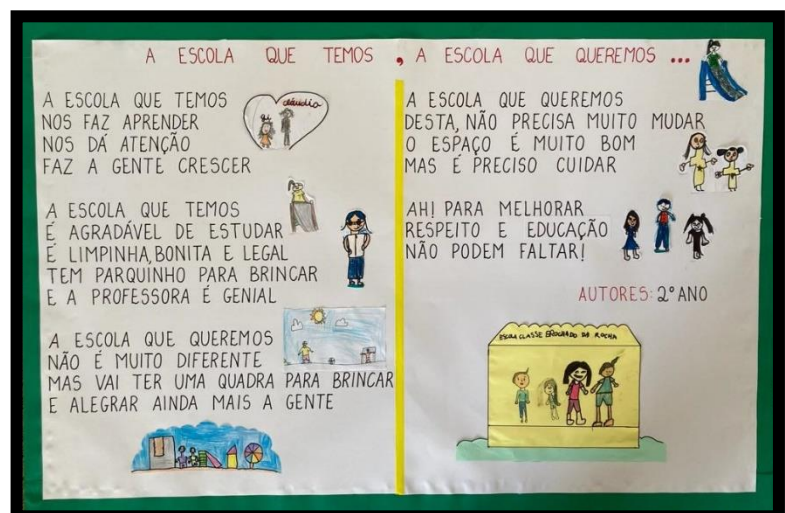 A ESCOLA QUE TEMOS, A ESCOLA QUE QUEREMOS...
A ESCOLA QUE TEMOS
NOS FAZ APRENDER
NOS DÁ ATENÇÃO
FAZ A GENTE CRESCER
cláudia
A ESCOLA QUE TEMOS
É AGRADÁVEL DE ESTUDAR
É LIMPINHA, BONITA E LEGAL
TEM PARQUINHO PARA BRINCAR
E A PROFESSORA É GENIAL
A ESCOLA QUE QUEREMOS
NÃO É MUITO DIFERENTE
MAS VAI TER UMA QUADRA PARA BRINCAR
E ALEGRAR AINDA MAIS A GENTE
A ESCOLA QUE QUEREMOS
DESTA, NÃO PRECISA MUITO MUDAR
O ESPAÇO É MUITO BOM
MAS É PRECISO CUIDAR
AH! PARA MELHORAR
RESPEITO E EDUCAÇÃO
NÃO PODEM FALTAR!
AUTORES: 2º ANO
ESCOLA CLASSE BROCHADO DA ROCHA